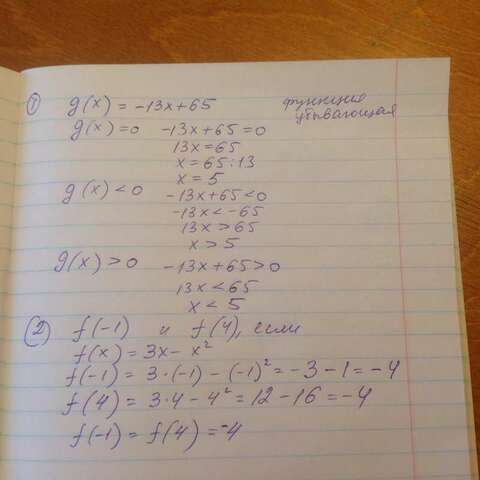 ① g(x) = -13x+65 функция убывающая
g(x)=0 -13x+65=0
13x=65
x=65:13
x=5
g(x)<0 -13x+65<0
-13x<-65
13x>65
x>5
g(x)>0 -13x+65>0
13x<65
x<5
② f(-1) и f(4), если
f(x) = 3x-x²
f(-1) = 3·(-1)-(-1)²=-3-1=-4
f(4) = 3·4-4²=12-16=-4
f(-1) = f(4)=-4